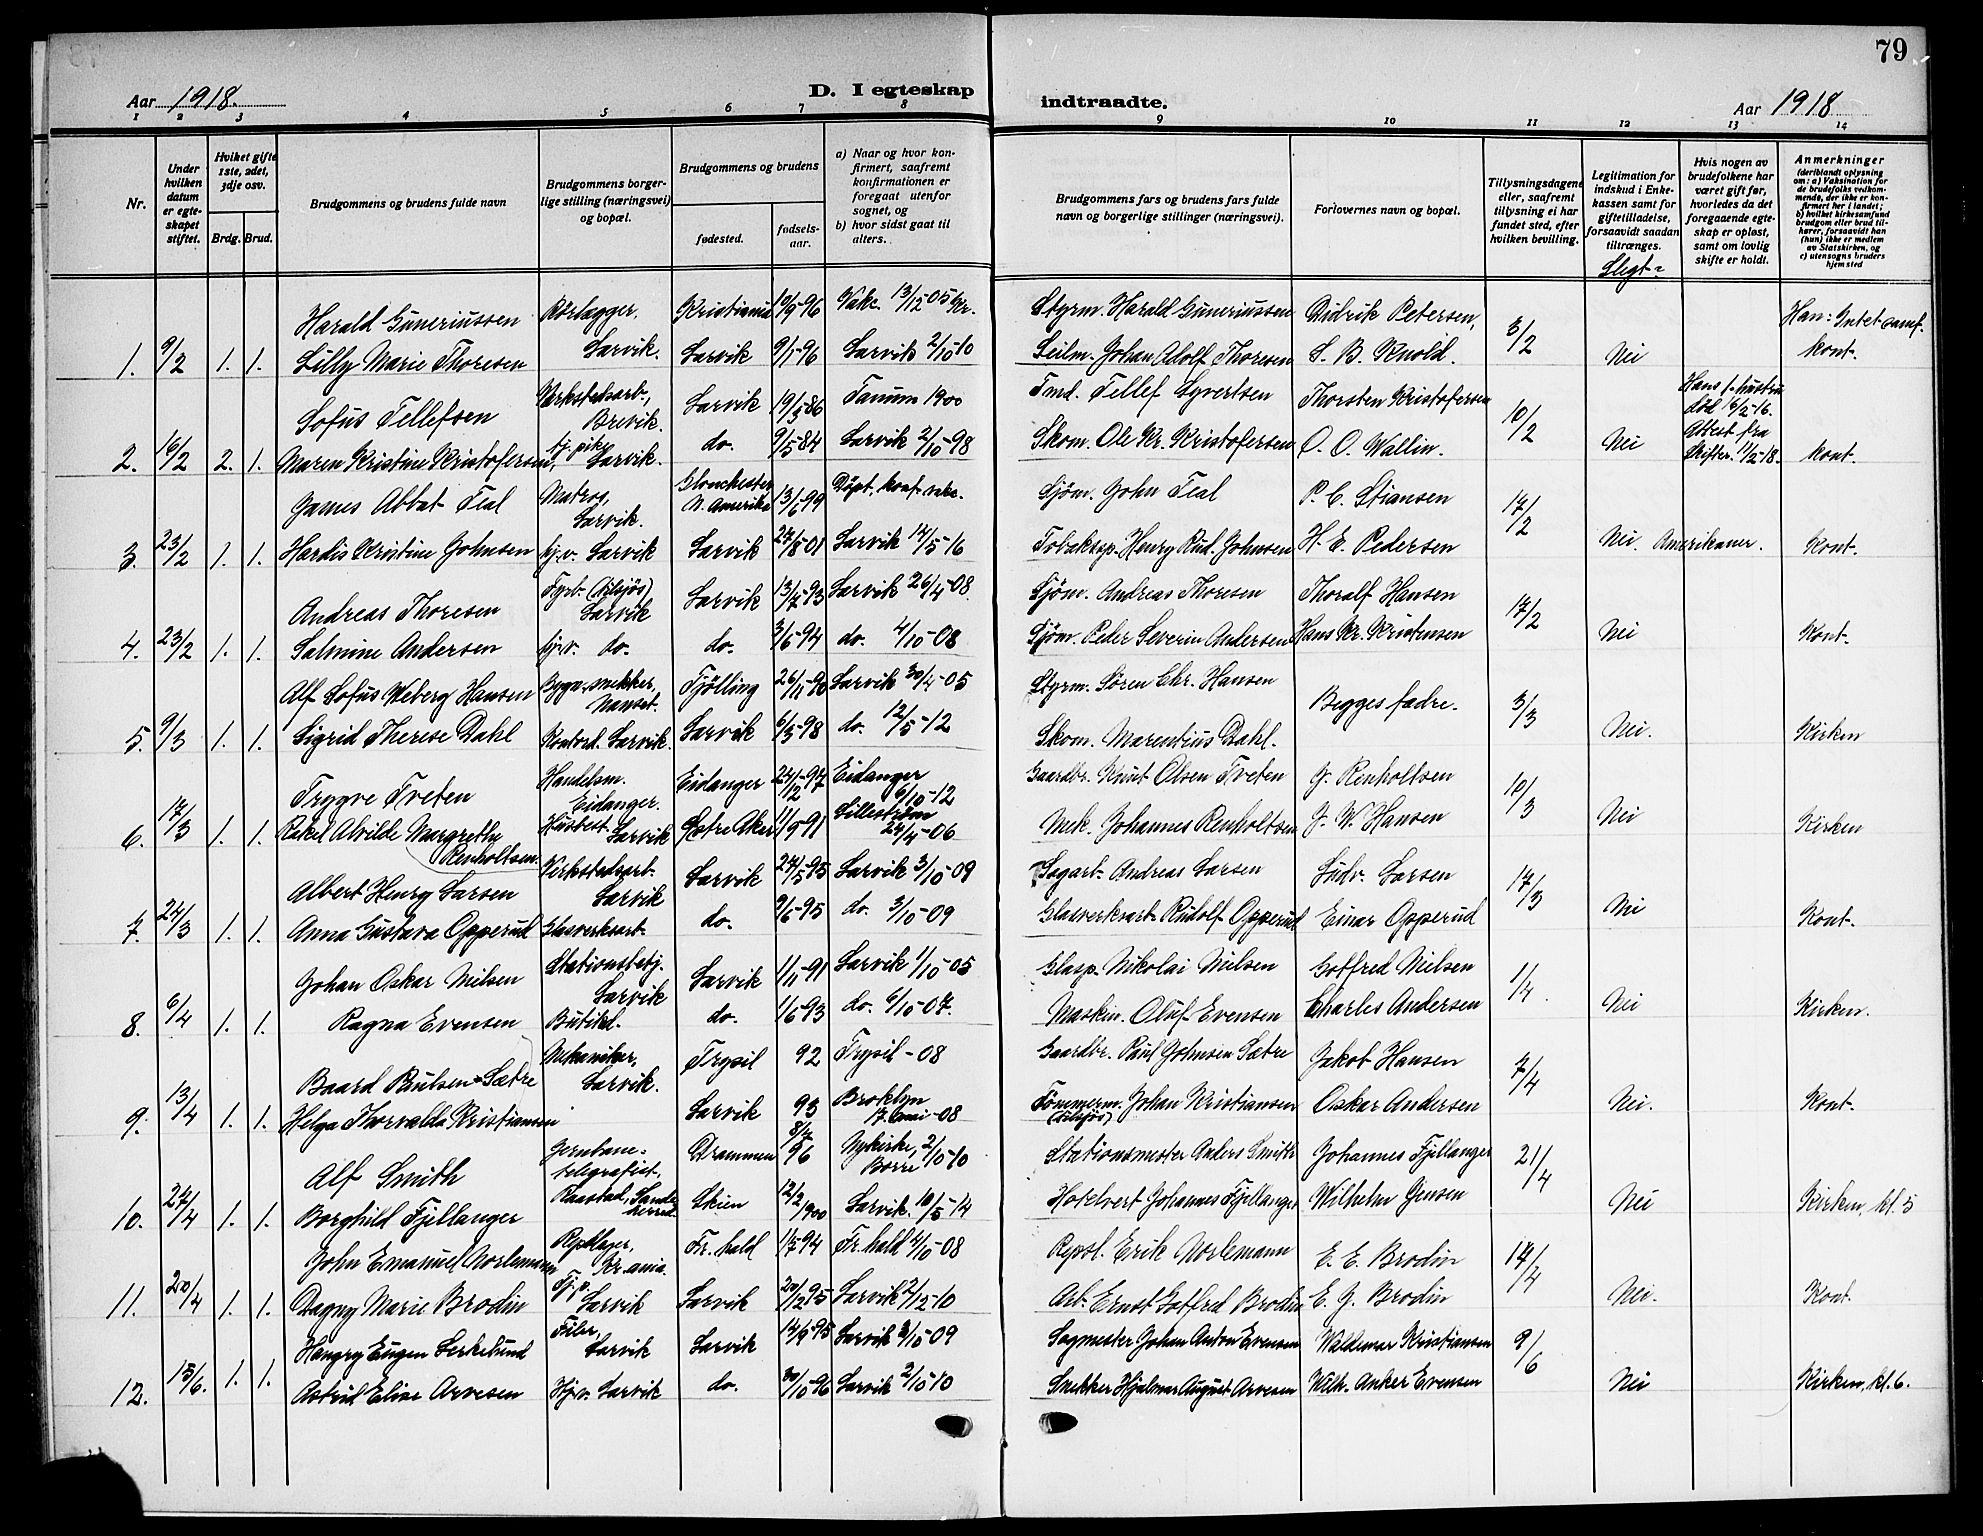 79
Aar 1918.
D. I egteskap
indtraadte.
Aar 1918
1 2 3 4 5 6 7 8 9 10 11 12 13 14
Nr.
Under hvilken datum er egteskapet stiftet.
Hvilket gifte 1ste, 2det, 3dje osv.
Brdg. Brud.
Brudgommens og brudens fulde navn
Brudgommens borgerlige stilling (næringsvei) og bopæl.
Brudgommens og brudens
fødested.
fødselsaar.
a) Naar og hvor konfirmert, saafremt konfirmationen er foregaat utenfor sognet, og
b) hvor sidst gaat til alters.
Brudgommens fars og brudens fars fulde navn og borgerlige stillinger (næringsvei).
Forlovernes navn og bopæl.
Tillysningsdagene eller, saafremt tillysning ei har fundet sted, efter hvilken bevilling.
Legitimation for indskud i Enkekassen samt for giftetilladelse, forsaavidt saadan tiltrænges.
Slegt?
Hvis nogen av brudefolkene har været gift før, hvorledes da det foregaaende egteskap er opløst, samt om lovlig skifte er holdt.
Anmerkninger (deriblandt oplysning om: a) Vaksination for de brudefolks vedkommende, der ikke er konfirmert her i landet; b) hvilket kirkesamfund brudgom eller brud tilhører, forsaavidt han (hun) ikke er medlem av Statskirken, og c) utensogns bruders hjemsted
Harald Guneriussen Rörlægger, Larvik. Kristiania 10/9-96 Vakc. 13/12-05 Kr. Styrm. Harald Guneriussen Didrik Petersen, Han: Intet samf.
1. 9/2 1. 1. Lilly Marie Thoresen Larvik 9/1-96 Larvik 2/10-10 Seilm. Johan Adolf Thoresen S. B. Knold. 3/2 Nei kont.
Sofus Tellefsen Verkstedsarb., Brevik. Larvik 19/5-86 Tanum 1900 Fmd. Tellef Syvertsen Thorsten Kristofersen Hans f. hustru död 16/2-16.
2. 16/2 2. 1. Maren Kristine Kristofersen, tj. pike Larvik. do. 9/5-84 Larvik 2/10-98 Skom. Ole Kr. Kristofersen O. O. Wallin. 10/2 Nei Attest fra Skifter. 11/2-18. kont.
James Abbot Teal Matros, Larvik. Glouchester N. Amerika 13/6-99 Döpt, konf. vakc. Sjöm. John Teal P. C. Stiansen
3. 23/2 1. 1. Hardis Kristine Johnsen hj.v. Larvik Larvik 27/8-01 Larvik 14/5-16 Tobaksp. Henry Rud. Johnsen H. E. Pedersen 17/2 Nei. Amerikaner. Kont.
Andreas Thoresen Fyrb. (tilsjös) Larvik Larvik 13/7-93 Larvik 26/4-08. Sjöm. Andreas Thoresen Thoralf Hansen
4. 23/2 1. 1. Salmine Andersen hj.v. do. do. 3/6-94 do. 4/10-08 Sjöm. Peder Severin Andersen Hans Kr. Kristensen 17/2 Nei Kont.
Alf Sofus Weberg Hansen Bygn.snekker, Nanset. Tjölling 26/11-90 Larvik 30/4-05 Styrm. Sören Chr. Hansen Begges fædre.
5. 9/3 1. 1. Sigrid Therese Dahl Kontord. Larvik. Larvik 6/3-98 do. 12/5-12 Skom. Marentius Dahl. 3/3 Nei. Kirken
Trygve Tveten Handelsm. Eidanger. Eidanger 24/2-97 Eidanger 6/10-12 Gaardbr. Knut Olsen Tveten J. Renholtsen
6. 17/3 1. 1. Rakel Alvilde Margrethe Renholtsen. Husbest. Larvik Sætre Aker 11/9-91 Lilleström 24/4-06 Mek. Johannes Renholtsen J. W. Hansen 10/3 Nei Kirken
Albert Henry Larsen Verkstedsarb. Larvik Larvik 27/5-95 Larvik 3/10-09 Sagarb. Andreas Larsen Ludv. Larsen
7. 24/3 1. 1. Anna Gustava Opperud Glasverksarb. do. 9/6-95 do. 3/10-09 Glasverksarb. Rudolf Opperud Einar Opperud 17/3 Nei Kont.
Johan Oskar Nilsen Stationsbetj. Larvik Larvik 1/11-91 Larvik 1/10-05 Glasp. Nikolai Nielsen Gotfred Nielsen
8. 6/4 1. 1. Ragna Evensen Butikd. do. 1/6-93 do. 6/10-07. Maskin. Oluf Evensen Charles Andersen 1/4. Nei Kirken.
Baard Paulsen Sætre Mekaniker, Larvik. Trysil 92 Trysil -08 Gaardbr. Paul Johnsen Sætre Jakob Hansen
9. 13/4 1. 1. Helga Thorvalda Kristiansen Larvik 93 Broklyn 17. mai -08 Tömmerm. (tilsjös) Johan Kristiansen Oskar Andersen 7/4 Nei. Kont.
Alf Smith Jernbanetelegrafist, Raastad, Sandeherred. Drammen 8/7 96 Nykirke, Borre 2/10-10 Stationsmester Anders Smith Johannes Fjellanger
10. 27/4 1. 1. Borghild Fjellanger Skien 12/2 1900 Larvik. 10/5-14 Hotelvert Johannes Fjellanger Wilhelm Jensen 21/4 Nei Kirken, kl. 5
John Emanuel Norlemann Repslager, Kr.ania. Fr.hald 11/7-94 Fr.hald 4/10-08 Repsl. Erik Norlemann E. E. Brodin
11. 20/4 1. 1. Dagny Marie Brodin Tj.p. Larvik Larvik 20/12-95 Larvik 2/12-10 Arb. Ernst Gotfred Brodin E. J. Brodin 14/4 Nei. Kont.
Hangry Eugen Lerkelund Filer, Larvik Larvik 14/9-95 Larvik 3/10-09 Sagmester Johan Anton Evensen Waldemar Kristiansen
12. 15/6. 1. 1. Astrid Elise Arvesen Hj.v. Larvik do. 30/10-96 Larvik 2/10-10 Snekker Hjalmar August Arvesen Wilh. Anker Evensen 9/6 Nei Kirken, kl. 6.